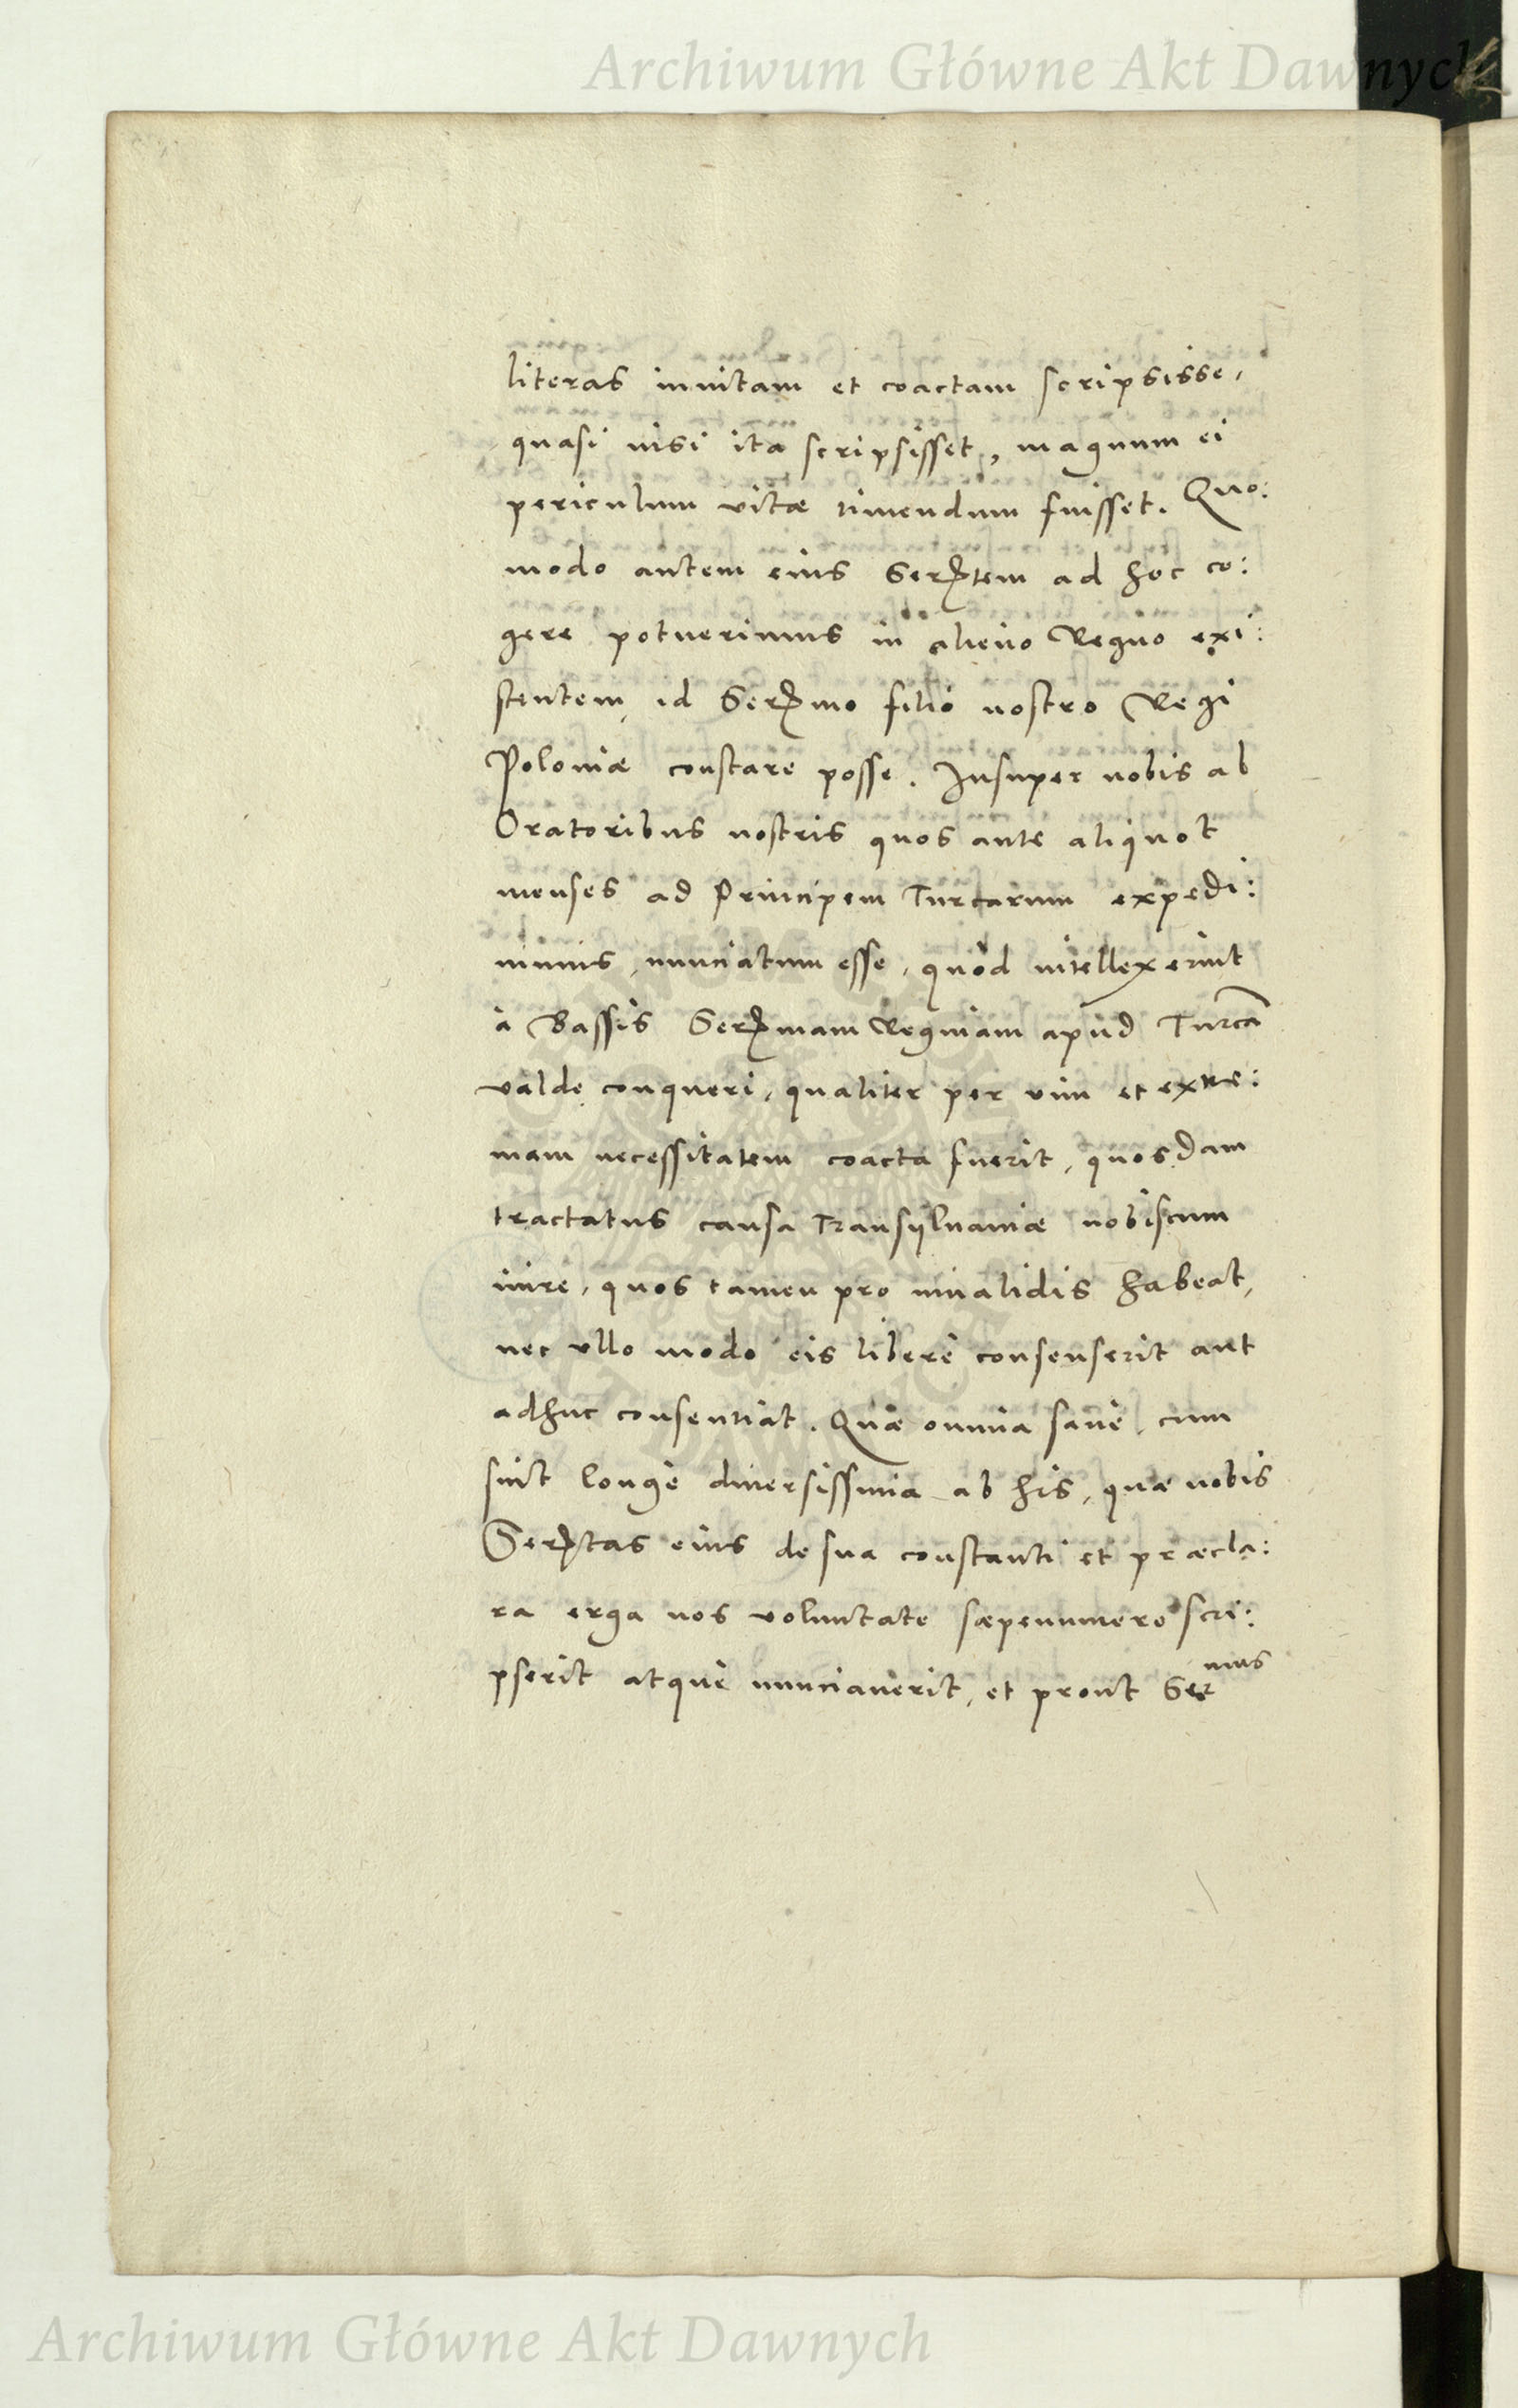 Archiwum Główne Akt Dawnych
literas inuitam et coactam scripsisse,
quasi nisi ita scripsisset, magnum ei
periculum vitæ timendum fuisset. Quo:
modo autem eius Sertem ad hoc co:
gere potuerimus in alieno Regno exi:
stentem, id Sermo filio nostro Regi
Poloniæ constare posse. Insuper nobis ab
Oratoribus nostris quos ante aliquot
menses ad Principem Turcarum expedi:
uimus, nunciatum esse, quòd intellexerint
à Bassis Sermam Reginam apud Turcā
valde conqueri, qualiter per vim et extre:
mam necessitatem coacta fuerit, quosdam
tractatus causa Transyluaniæ nobiscum
inire, quos tamen pro inualidis habeat,
nec vllo modo eis liberè consenserit aut
adhuc consentiat. Quæ omnia sanè, cum
sint longè diuersissima ab his, quæ nobis
Sertas eius de sua constanti et præcla:
ra erga nos voluntate sæpenumero scri:
pserit atque nunciauerit, et prout Ser
mus
Archiwum Główne Akt Dawnych